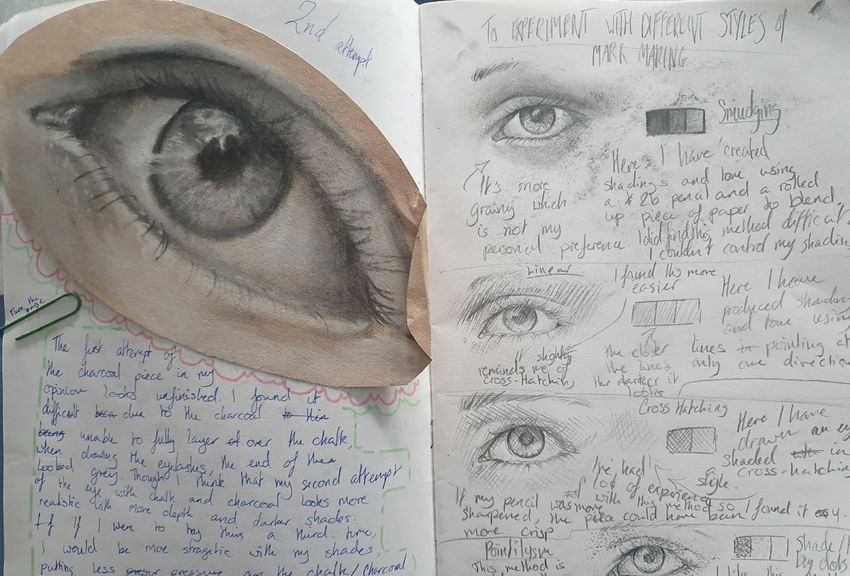 2nd
attempt
Turn the
page
The first attempt of
the charcoal piece in my
opinion looks unfinished. I found it
difficult due to the charcoal
being unable to fully layer over the chalk
when drawing the eyelashes, the end of them
looked grey. Though I think that my second attempt
of the eye with chalk and charcoal looks more
realistic with more depth and darker shades.
If I were to try this a third time,
I would be more stragetic with my shades,
putting less pressure on the chalk/charcoal
TO EXPERIMENT WITH DIFFERENT STYLES of
MARK MAKING
Smudging
Here I have created
shadings and tone using
a 2b pencil and a rolled
up piece of paper to blend,
I did find this method difficult
I couldn't control my shading
It's more
grainy which
is not my
personal preference
Linear
I found this more
easier
Here I have
produced shading
and tone using
lines pointing at
only one direction
the closer
the lines
the darker it
looks
It slightly
reminds me of
cross-Hatching
Cross Hatching
Here I have
drawn an eye
shaded in
cross-hatching
style.
I've had
a lot of experience
with this method so
I found it easy.
If my pencil was more
sharpened, the piece could have been
more crisp
Pointilysm
This method is
Shade/
by dots